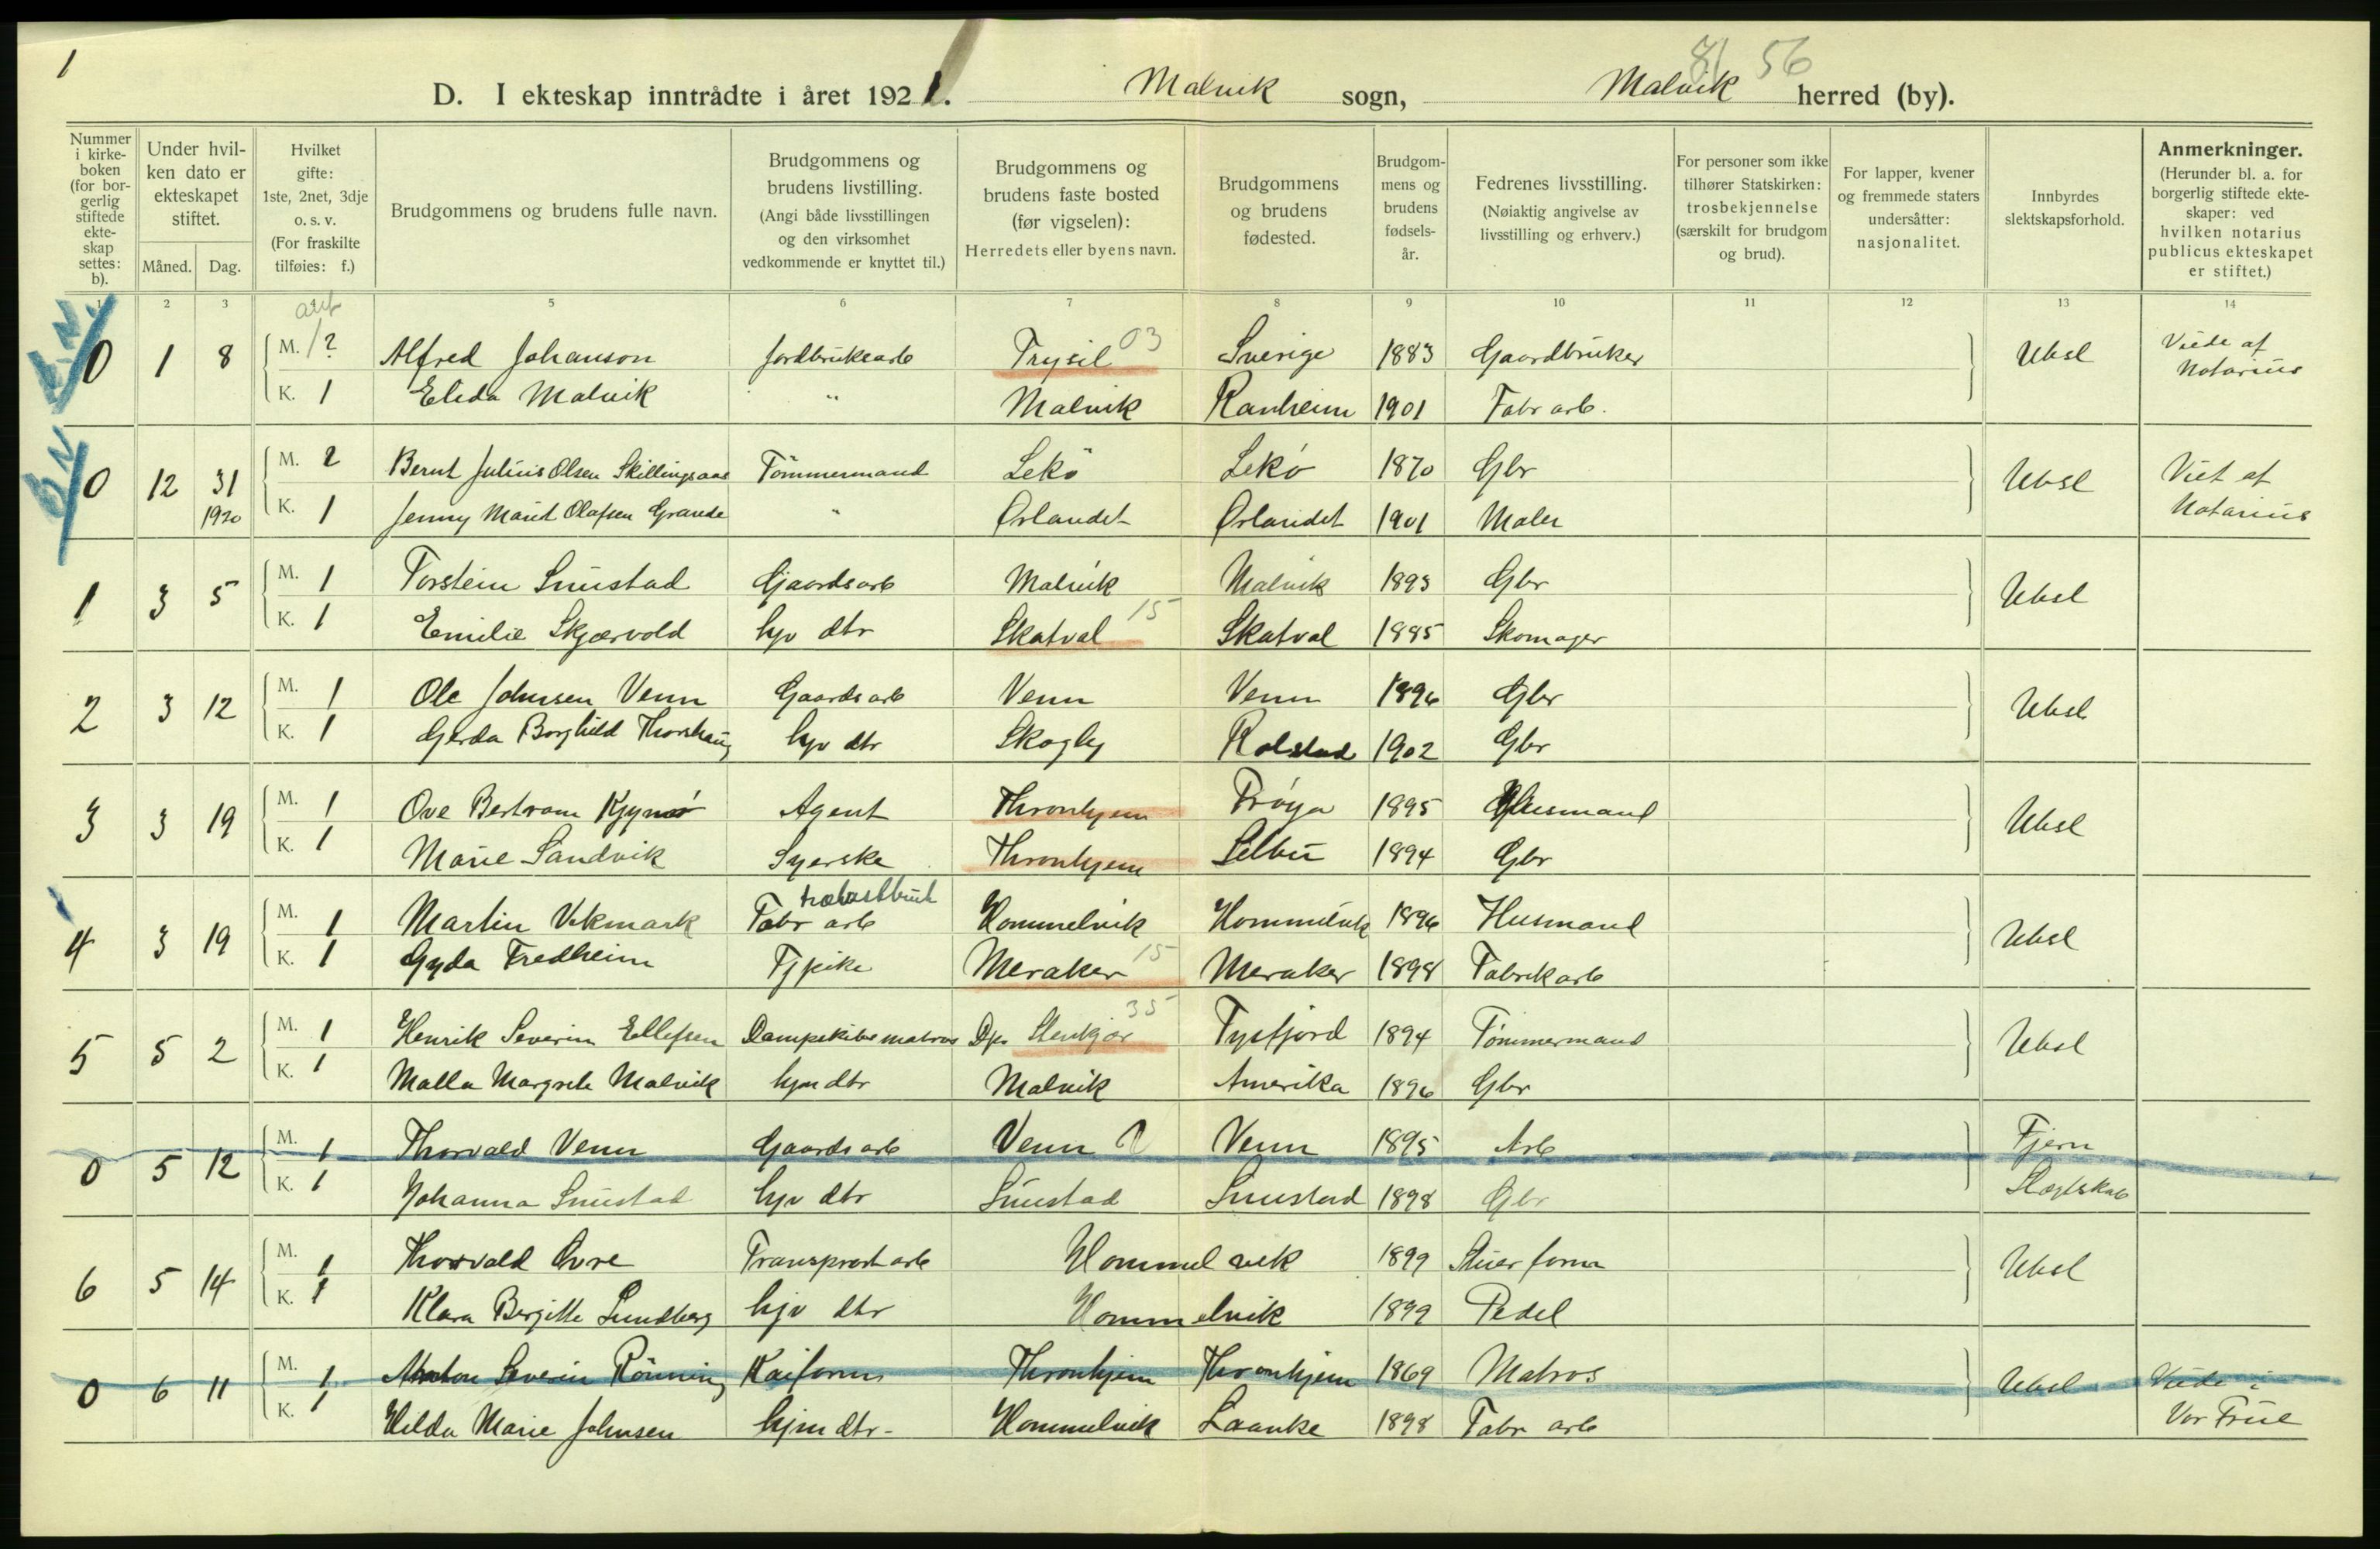 1
81 56
D. I ekteskap inntrådte i året 1921. Malvik sogn, Malvik herred (by).
Nummer i kirke-boken (for bor-gerlig stiftede ekte-skap settes: b).
Under hvil-ken dato er ekteskapet stiftet.
Måned. Dag.
Hvilket gifte: 1ste, 2net, 3dje o. s. v. (For fraskilte tilføies: f.)
Brudgommens og brudens fulle navn.
Brudgommens og brudens livstilling. (Angi både livsstillingen og den virksomhet vedkommende er knyttet til.)
Brudgommens og brudens faste bosted (før vigselen): Herredets eller byens navn.
Brudgommens og brudens fødested.
Brudgom-mens og brudens fødsels-år.
Fedrenes livsstilling. (Nøiaktig angivelse av livsstilling og erhverv.)
For personer som ikke tilhører Statskirken: trosbekjennelse (særskilt for brudgom og brud).
For lapper, kvener og fremmede staters undersåtter: nasjonalitet.
Innbyrdes slektskapsforhold.
Anmerkninger. (Herunder bl. a. for borgerlig stiftede ekte-skaper: ved hvilken notarius publicus ekteskapet er stiftet.)
1 2 3 5 6 7 8 9 10 11 12 13 14
0 1 8 M. 1? Alfred Johanson Jordbruksarb Trysil 03 Sverige 1883 Gaardbruker Ubsl Viede af Notarius
K. 1 Elida Malvik " Malvik Ranheim 1901 Fabr arb.
0 12 31 1920 M. 2 Bernt Julius Olsen Skillingsaas Tömmermand Lekö Lekö 1870 Gbr Ubsl Viet af Notarius
K. 1 Jenny Marit Olafsen Grande " Ørlandet Ørlandet 1901 Maler
1 3 5 M. 1 Torstein Smistad Gaardsarb Malvik Malvik 1893 Gbr Ubsl
K. 1 Emilie Skjærvold hjv dtr Skatval 15 Skatval 1885 Skomager
2 3 12 M. 1 Ole Johnsen Venn Gaardsarb Venn Venn 1896 Gbr Ubsl
K. 1 Gerda Borghild Thorshaug hjv dtr Skogly Rolstad 1902 Gbr
3 3 19 M. 1 Ove Bertram Agent Thronhjem Frøya 1895 Husmand Ubsl
K. 1 Marie Sandvik Syerske Thronhjem Selbu 1894 Gbr
4 3 19 M. 1 Martin Vikmark Fabr arb trælastbruk Hommelvik Hommelvik 1896 Husmand Ubsl
K. 1 Gyda Fredheim Tjpike Meraker 15 Meraker 1898 Fabrikarb
5 5 2 M. 1 Henrik Severin Ellefsen Dampskibsmatros Dps Stenkjær 35 Tysfjord 1894 Tømmermand Ubsl
K. 1 Malla Margrete Malvik hjm dtr Malvik Amerika 1896 Gbr
0 5 12 M. 1 Thorvald Venn Gaardsarb Venn Venn 1895 Arb Fjern Slægtskab
K. 1 Johanna Smistad hjv dtr Smistad Smistad 1898 Gbr
6 5 14 M. 1 Thorvald Transportarb Hommelvik 1899 Ubsl
K. 1 Klara Bergitte Lundberg hjv dtr Hommelvik 1899 Pedel
0 6 11 M. 1 Anton Severin Rönning Kaiform Thronhjem Thronhjem 1869 Matros Ubsl Viede i Vor Frue
K. 1 Hilda Marie Johnsen hjm dtr- Hommelvik Laanke 1898 Fabr arb